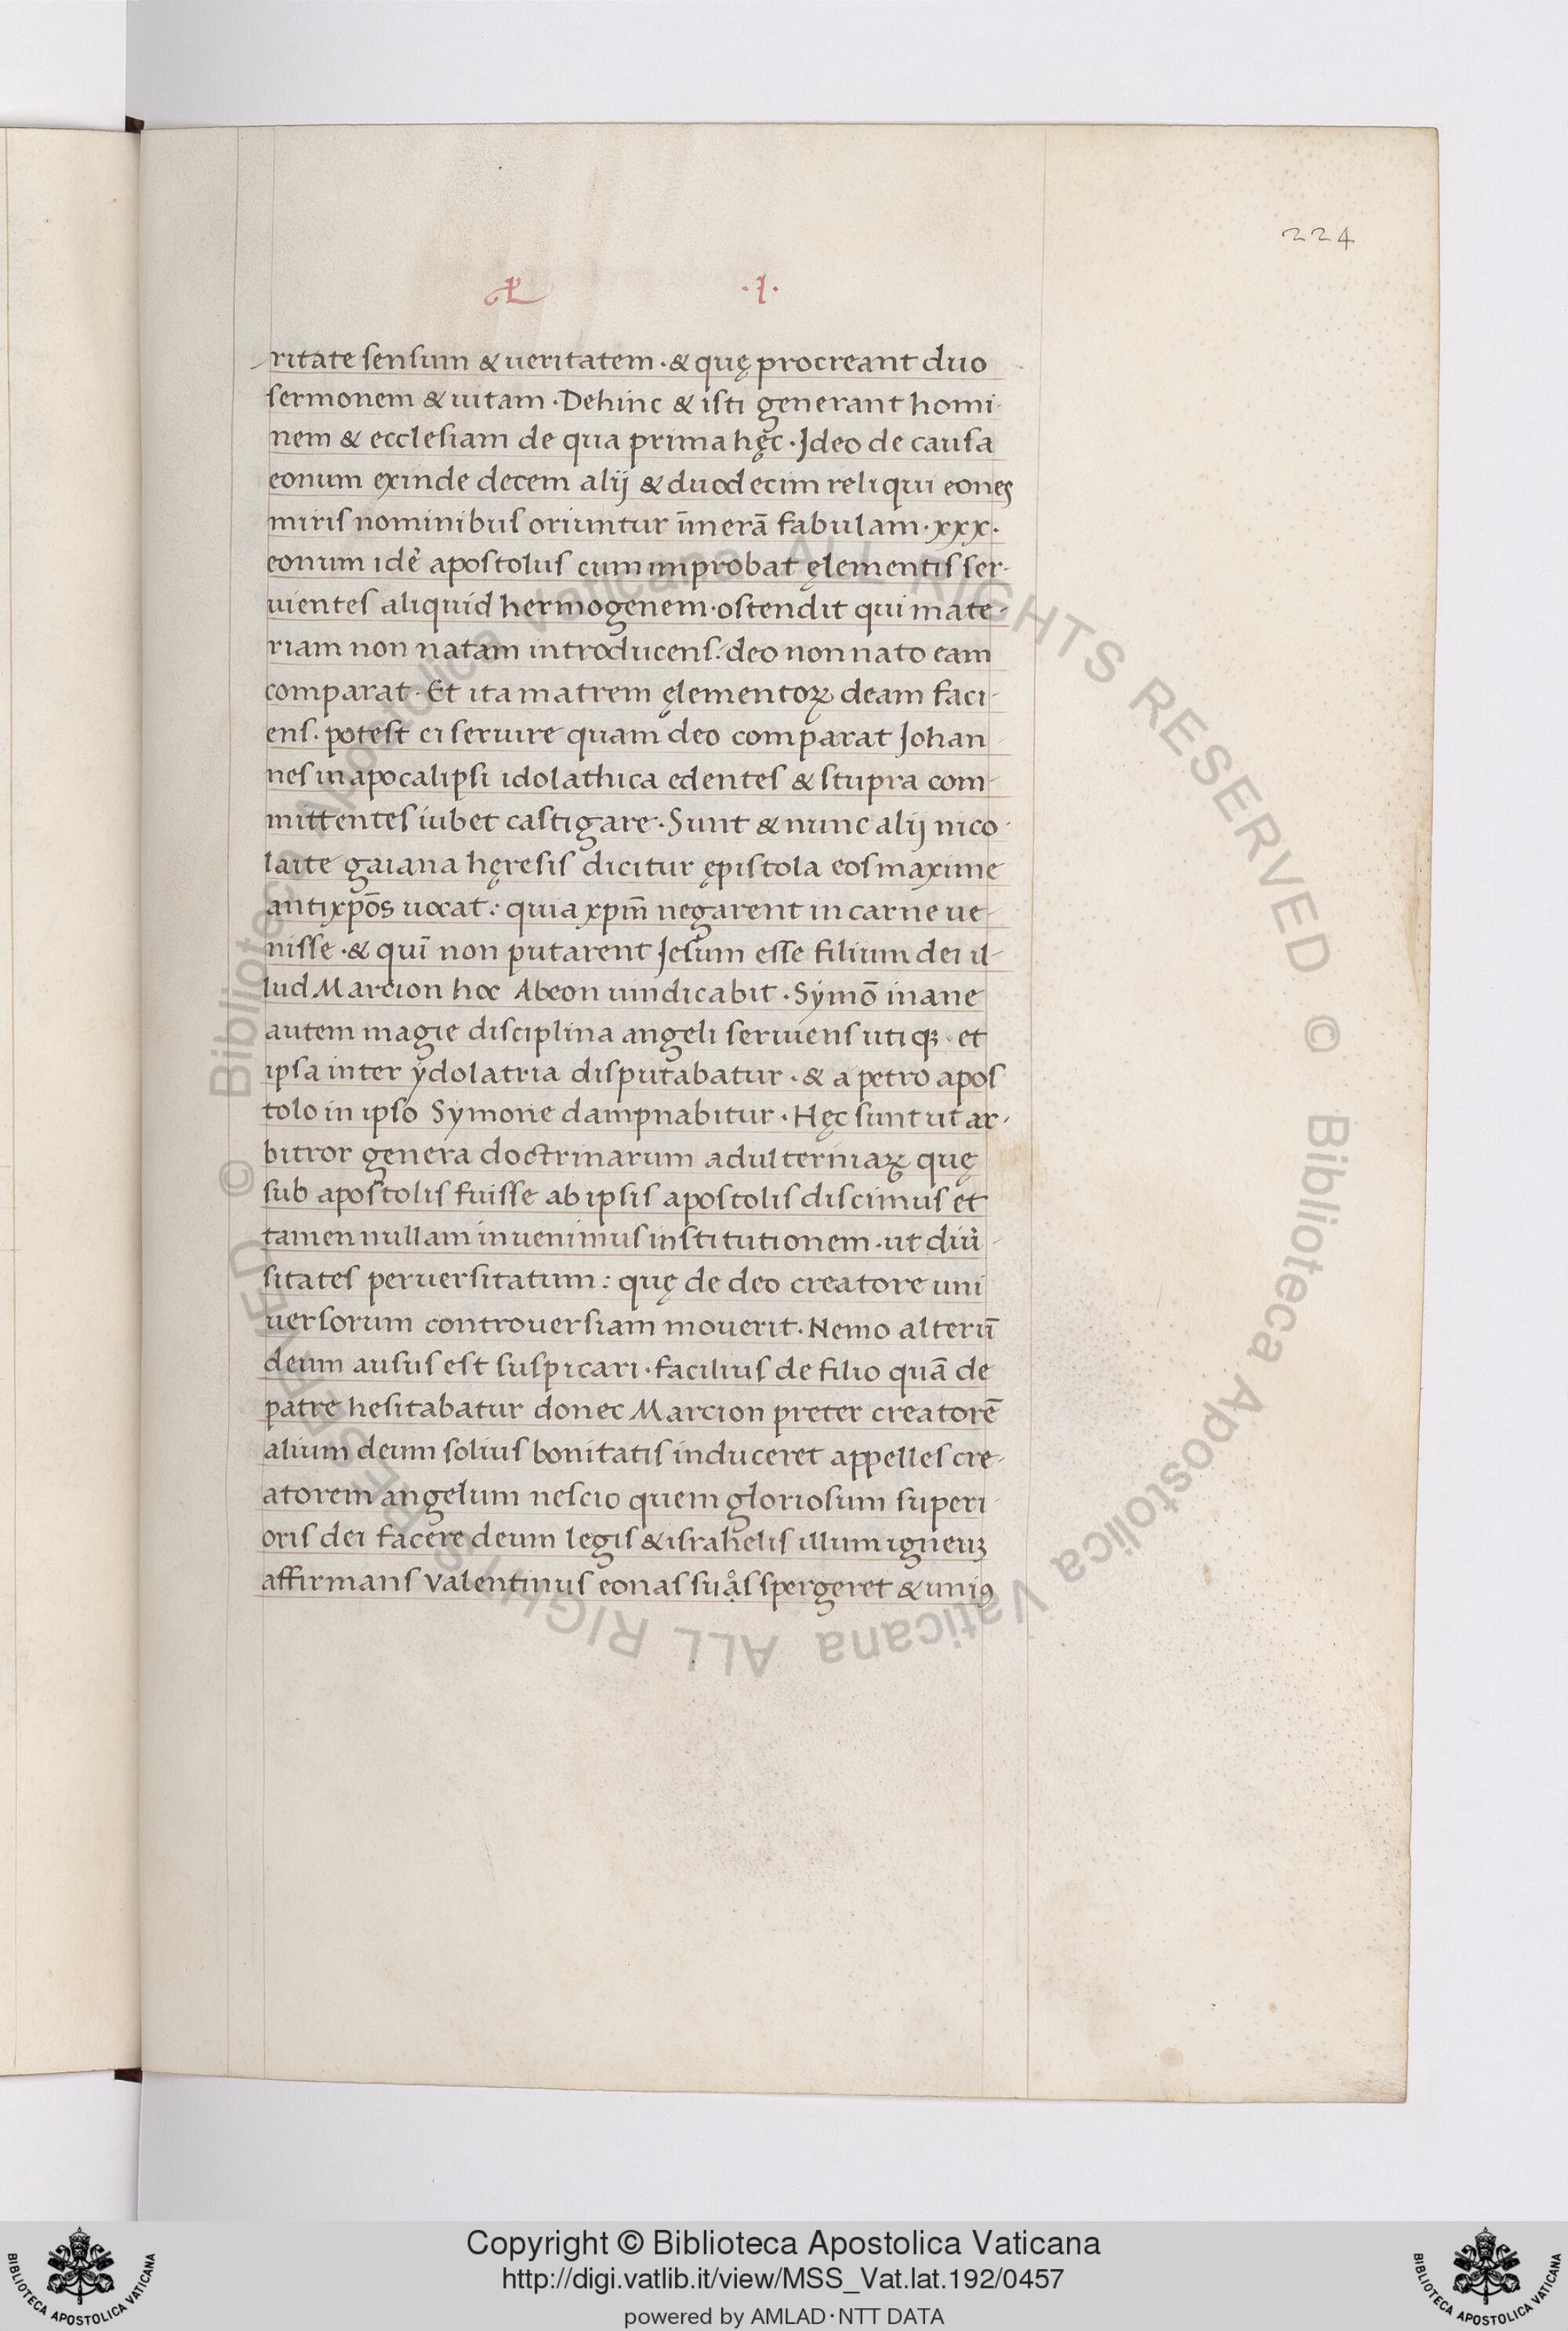 224
.I.
ritate sensum & ueritatem · & quę procreant duo
sermonem & uitam · Dehinc & isti generant homi-
nem & ecclesiam de qua prima hęc · Ideo de causa
eonum exinde decem alij & duodecim reliqui eones
miris nominibus oriuntur ĩmerã fabulam · xxx ·
eonum idẽ apostolus cum improbat ęlementis ser-
uientes aliquid hermogenem · ostendit qui mate-
riam non natam introducens · deo non nato eam
comparat · Et ita matrem ęlementoꝝ deam faci-
ens · potest ei seruire quam deo comparat Johan-
nes in apocalipsi idolathica edentes & stupra com-
mittentes iubet castigare · Sunt & nunc alij nico-
laite gaiana hęresis dicitur ępistola eos maxime
antixp̄os uocat : quia xpm̄ negarent in carne ue-
nisse · & quĩ non putarent Jesum esse filium dei il-
lud Marcion hoc Abeon uindicabit · Symõ inane
autem magie disciplina angeli seruiens utiqꝫ · et
ipsa inter ydolatria disputabatur · & a petro apos
tolo in ipso Symone dampnabitur · Hęc sunt ut ar-
bitror genera doctrinarum adulteriniaꝝ quę
sub apostolis fuisse ab ipsis apostolis discimus et
tamen nullam inuenimus institutionem · ut diũ-
sitates peruersitatum : quę de deo creatore uni
uersorum controuersiam mouerit · Nemo alterũ
deum ausus est suspicari · facilius de filio quã de
patre hesitabatur donec Marcion preter creatorẽ
alium deum solius bonitatis induceret appelles cre-
atorem angelum nescio quem gloriosum superi-
oris dei facere deum legis & israhelis illum igneuꝫ
affirmans Valentinus eonas suas spergeret & uniꝰ
© Biblioteca Apostolica Vaticana ALL RIGHTS RESERVED © Biblioteca Apostolica Vaticana ALL RIGHTS RESERVED
Copyright © Biblioteca Apostolica Vaticana
http://digi.vatlib.it/view/MSS_Vat.lat.192/0457
powered by AMLAD · NTT DATA
BIBLIOTECA APOSTOLICA VATICANA
BIBLIOTECA APOSTOLICA VATICANA